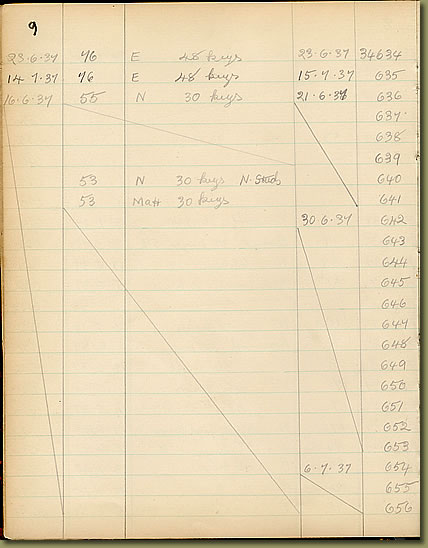 9
23·6·37 46 E 48 keys 23·6·37 34634
14·7·37 46 E 48 keys 15·7·37 635
16·6·37 55 N 30 keys 21·6·37 636
637
638
639
53 N 30 keys N. Studs 640
53 Matt 30 keys 641
30 6·37 642
643
644
645
646
647
648
649
650
651
652
653
6·7·37 654
655
656